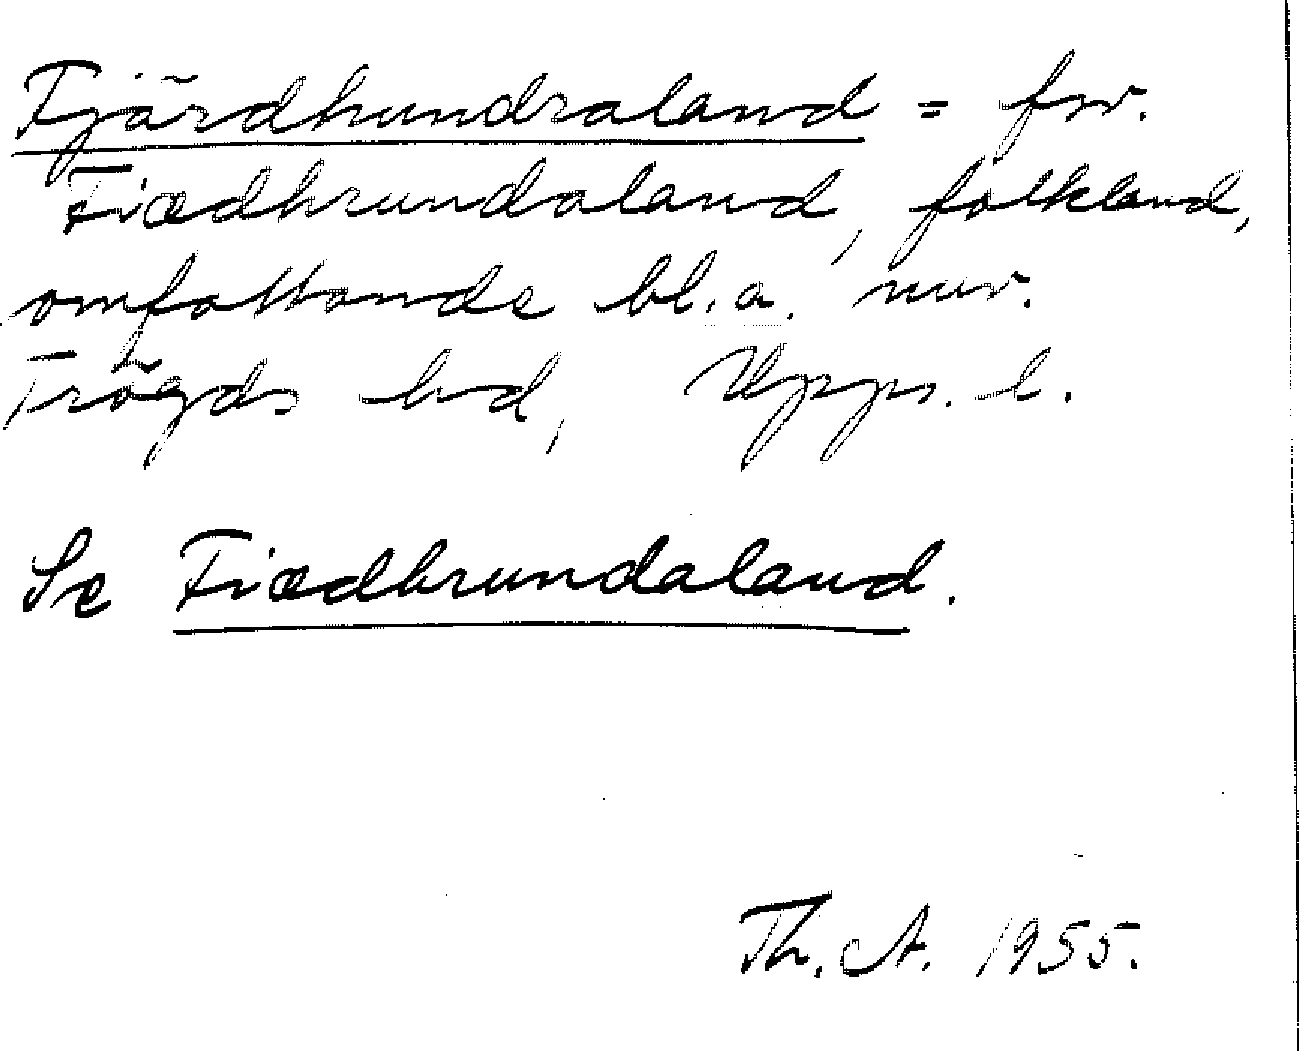 Fjärdhundraland = fsv.
Fiædhrundaland, folkland,
omfattande bl.a. nuv.
Trögds hd, Upps. l.
Se Fiædhrundaland.
Th. A. 1955.